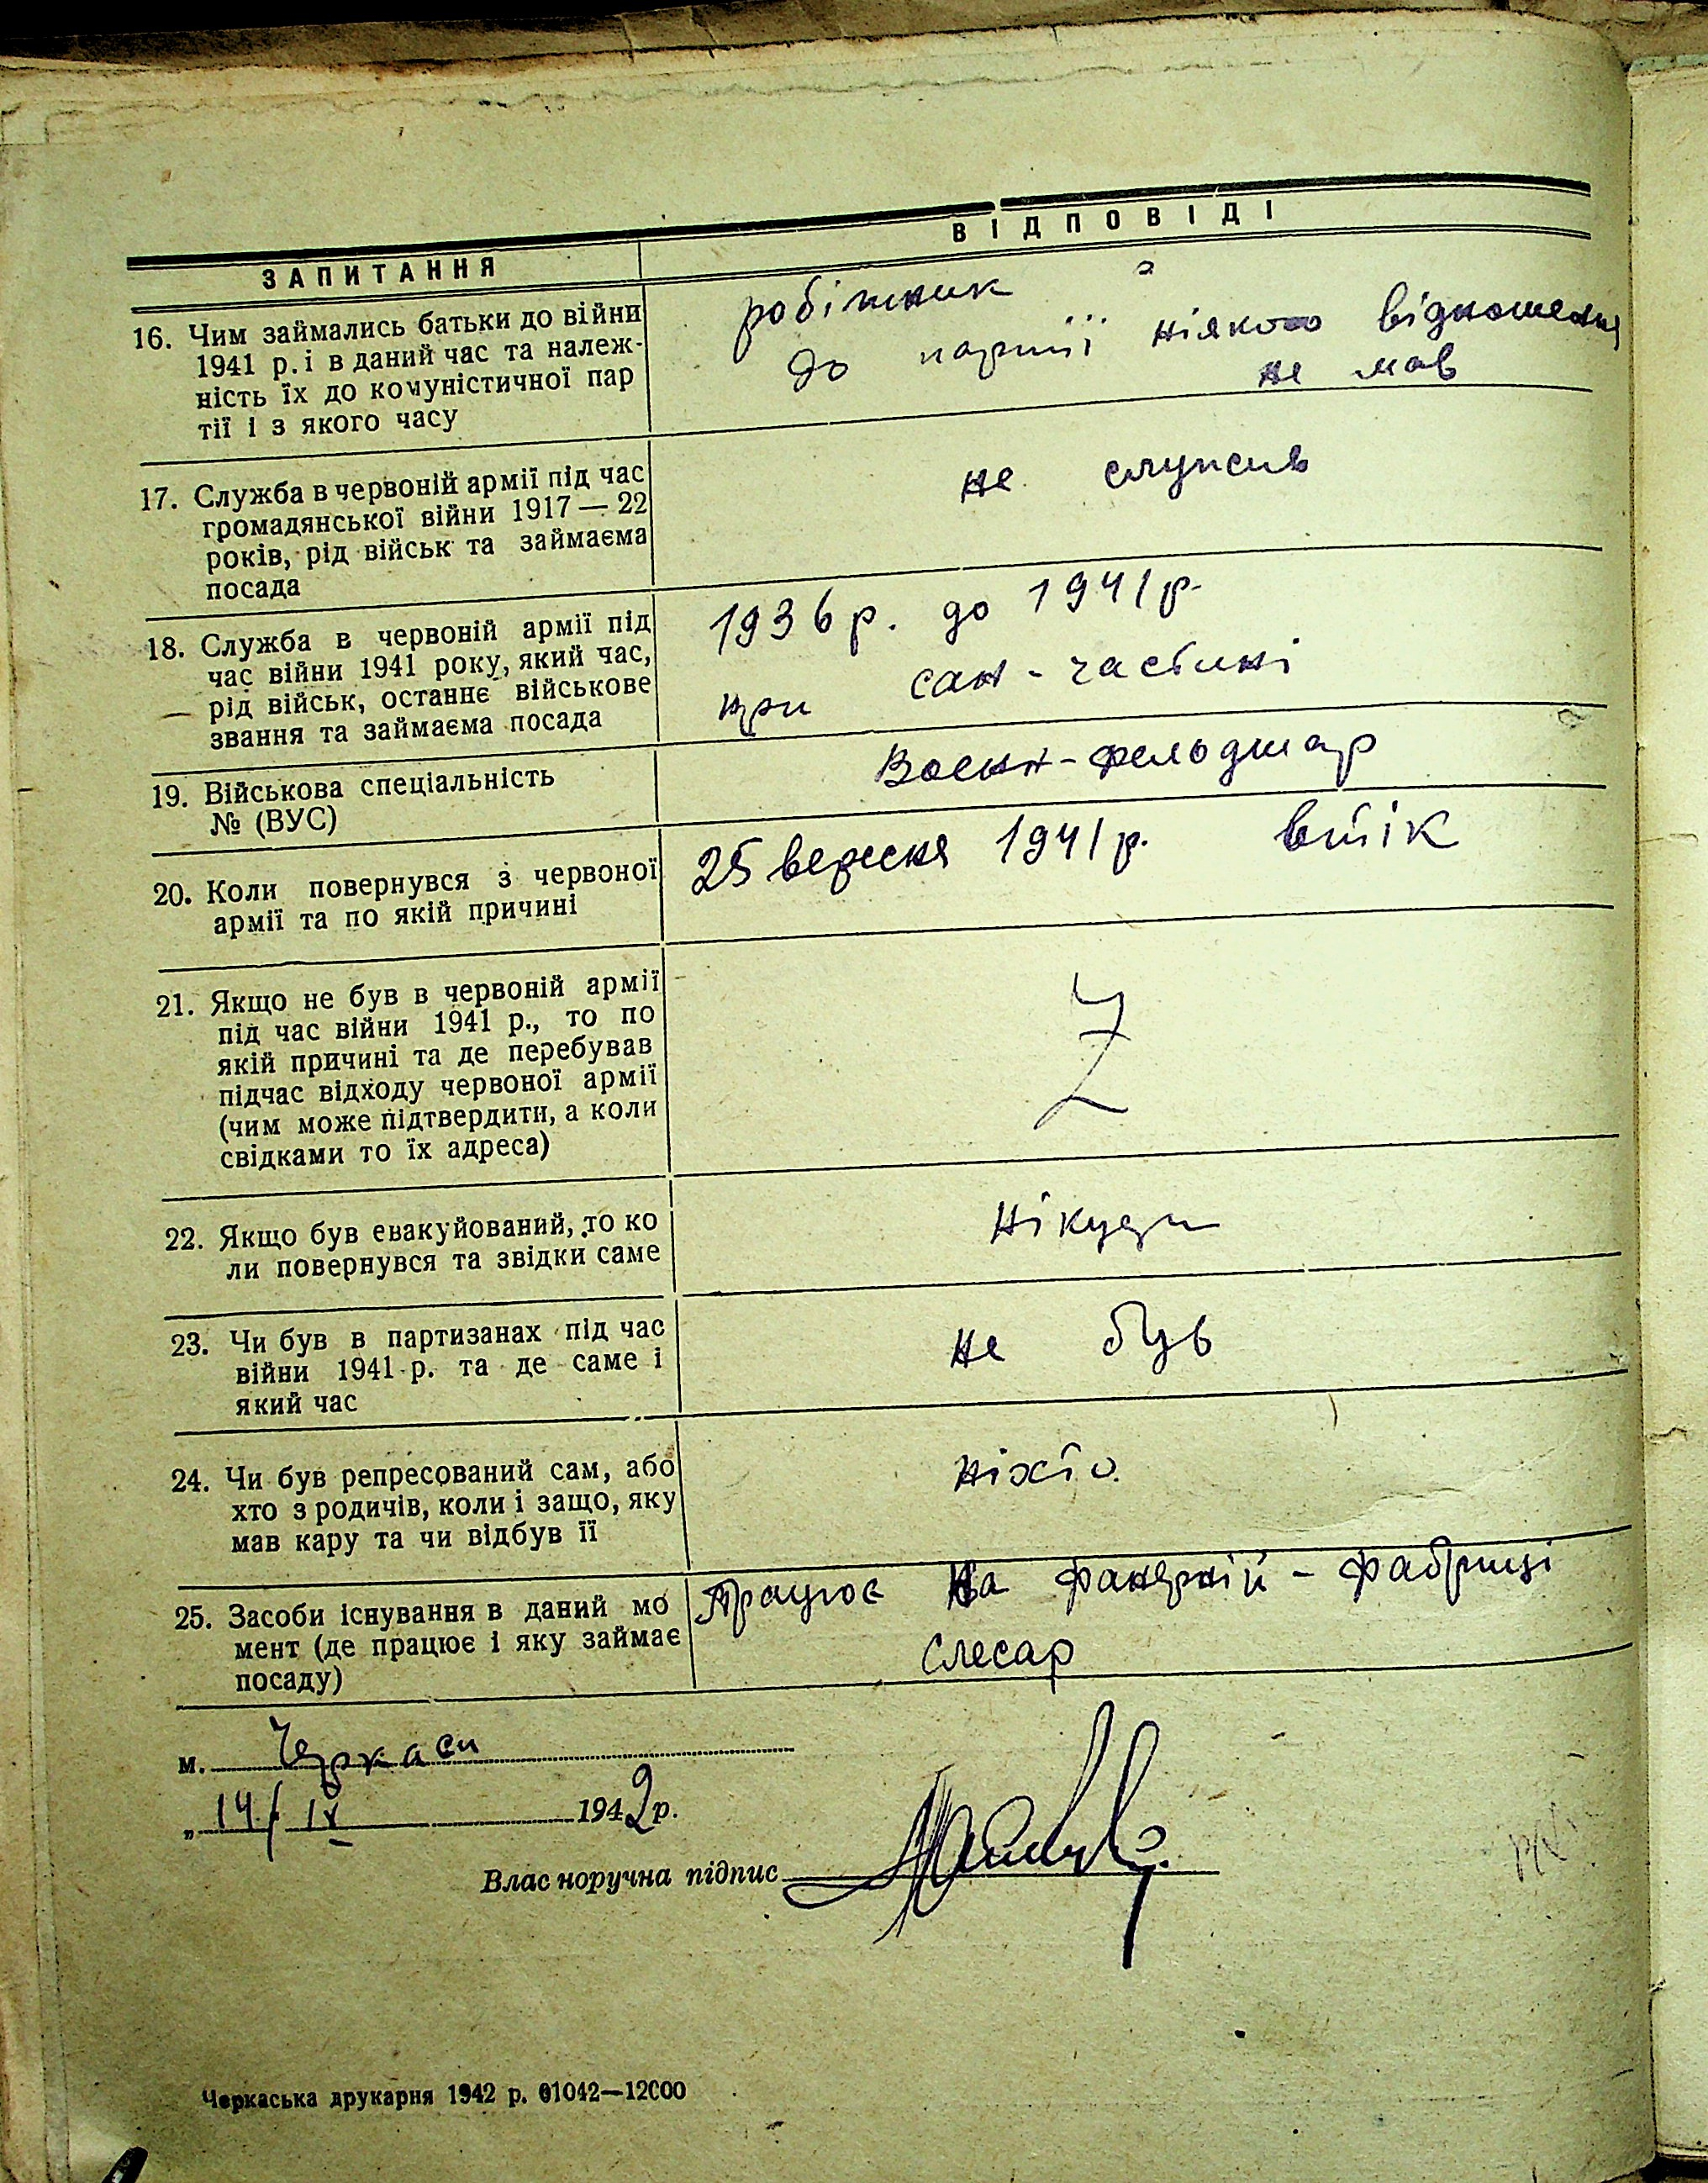 ЗАПИТАННЯ
ВІДПОВІДІ
16. Чим займались батьки до війни
1941 р. і в даний час та належ-
ність їх до комуністичної пар
тії і з якого часу
робітник
до партії ніякого відношення
не мав
17. Служба в червоній армії під час
громадянської війни 1917 — 22
років, рід військ та займаєма
посада
не служив
18. Служба в червоній армії під
час війни 1941 року, який час,
рід військ, останнє військове
звання та займаєма посада
1936 р. до 1941 р.
при сан-частині
19. Військова спеціальність
№ (ВУС)
Воєнн-фельдшар
20. Коли повернувся з червоної
армії та по якій причині
25 вересня 1941 р. втік
21. Якщо не був в червоній армії
під час війни 1941 р., то по
якій причині та де перебував
підчас відходу червоної армії
(чим може підтвердити, а коли
свідками то їх адреса)
22. Якщо був евакуйований, то ко
ли повернувся та звідки саме
Нікуди
23. Чи був в партизанах під час
війни 1941 р. та де саме і
який час
не був
24. Чи був репресований сам, або
хто з родичів, коли і защо, яку
мав кару та чи відбув її
ніхто.
25. Засоби існування в даний мо
мент (де працює і яку займає
посаду)
Працює на фанерній - фабриці
слесар
м. Черкаси
„ 14/ IV 1942 р.
Влас норучна підпис
Черкаська друкарня 1942 р. 01042—12000